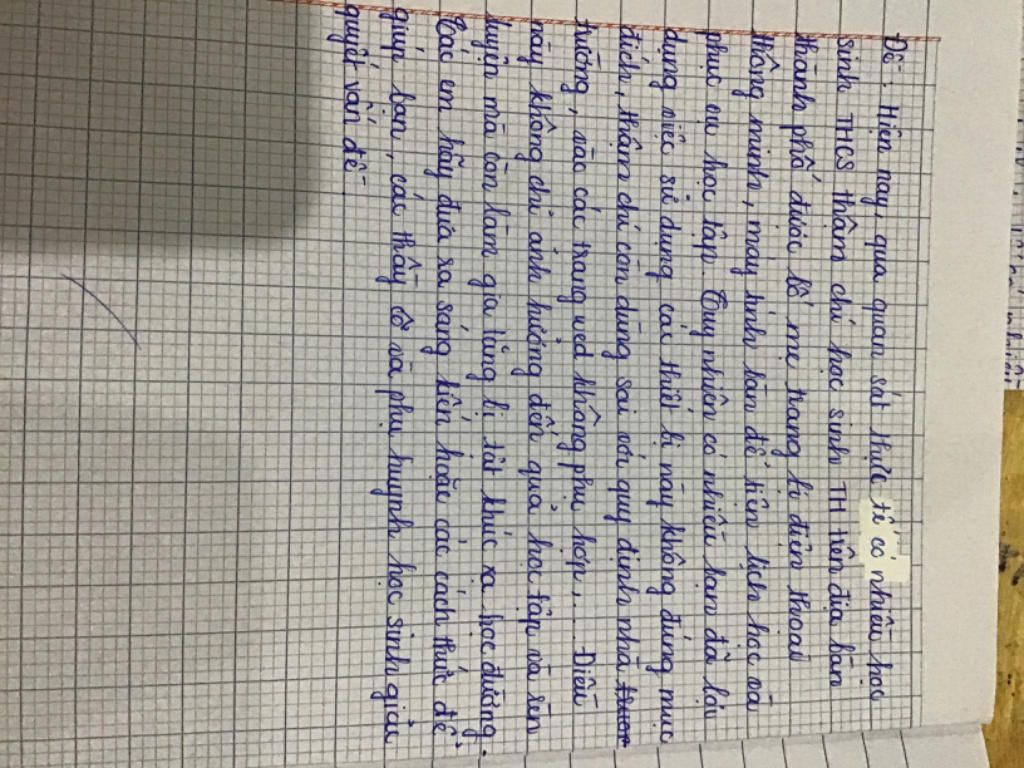 Đề: Hiện nay, qua quan sát thực tế có nhiều học
sinh THCS thậm chí học sinh TH trên địa bàn
thành phố được bố mẹ trang bị điện thoại
thông minh, máy tính bàn để tiện lịch học và
phục vụ học tập. Tuy nhiên có nhiều bạn đã lợi
dụng việc sử dụng các thiết bị này không đúng mục
đích, thậm chí còn dùng sai với quy định nhà
trường, vào các trang wed không phù hợp,... Điều
này không chỉ ảnh hưởng đến quả học tập và rèn
luyện mà còn làm gia tăng bị tật khúc xạ học đường.
Các em hãy đưa ra sáng kiến hoặc các cách thức để
giúp bạn, các thầy cô và phụ huynh học sinh giải
quyết vấn đề